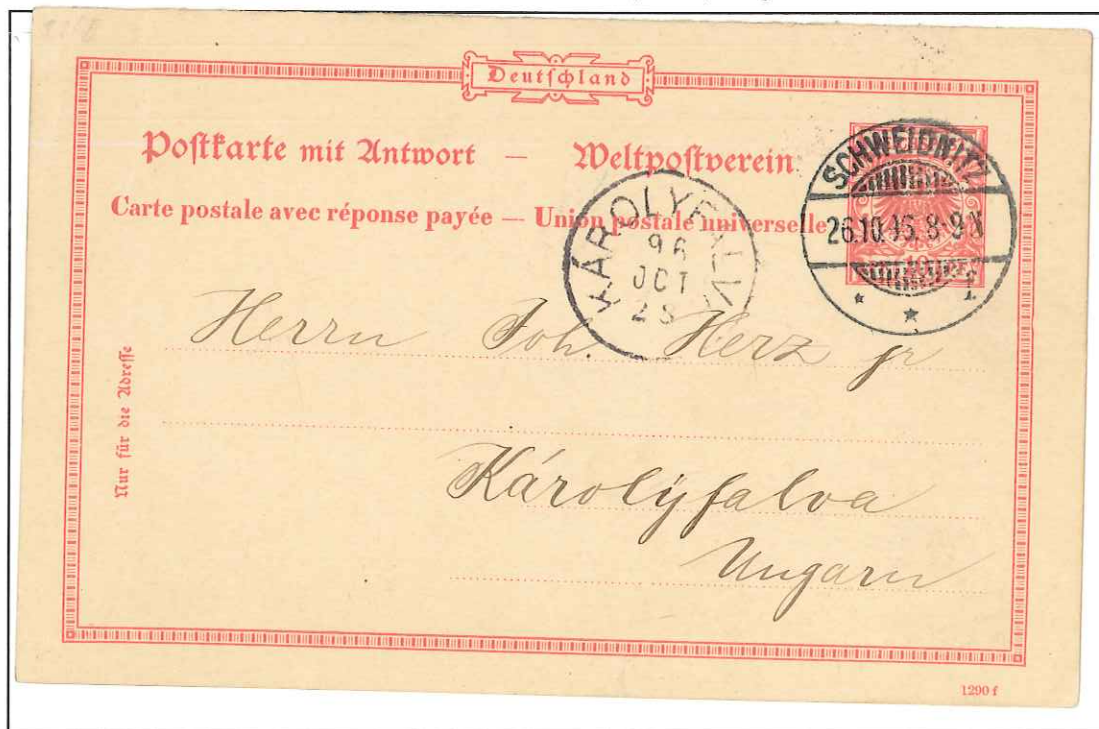 Deutschland
Postkarte mit Antwort — Weltpostverein
Carte postale avec réponse payée — Union postale universelle
SCHWEIDNITZ
26.10.96. 8-9 N
f
KÁROLYFALVA
96
OCT
28
Herrn Joh. Herz jr
Károlyfalva
Ungarn
Nur für die Adresse
1290 f